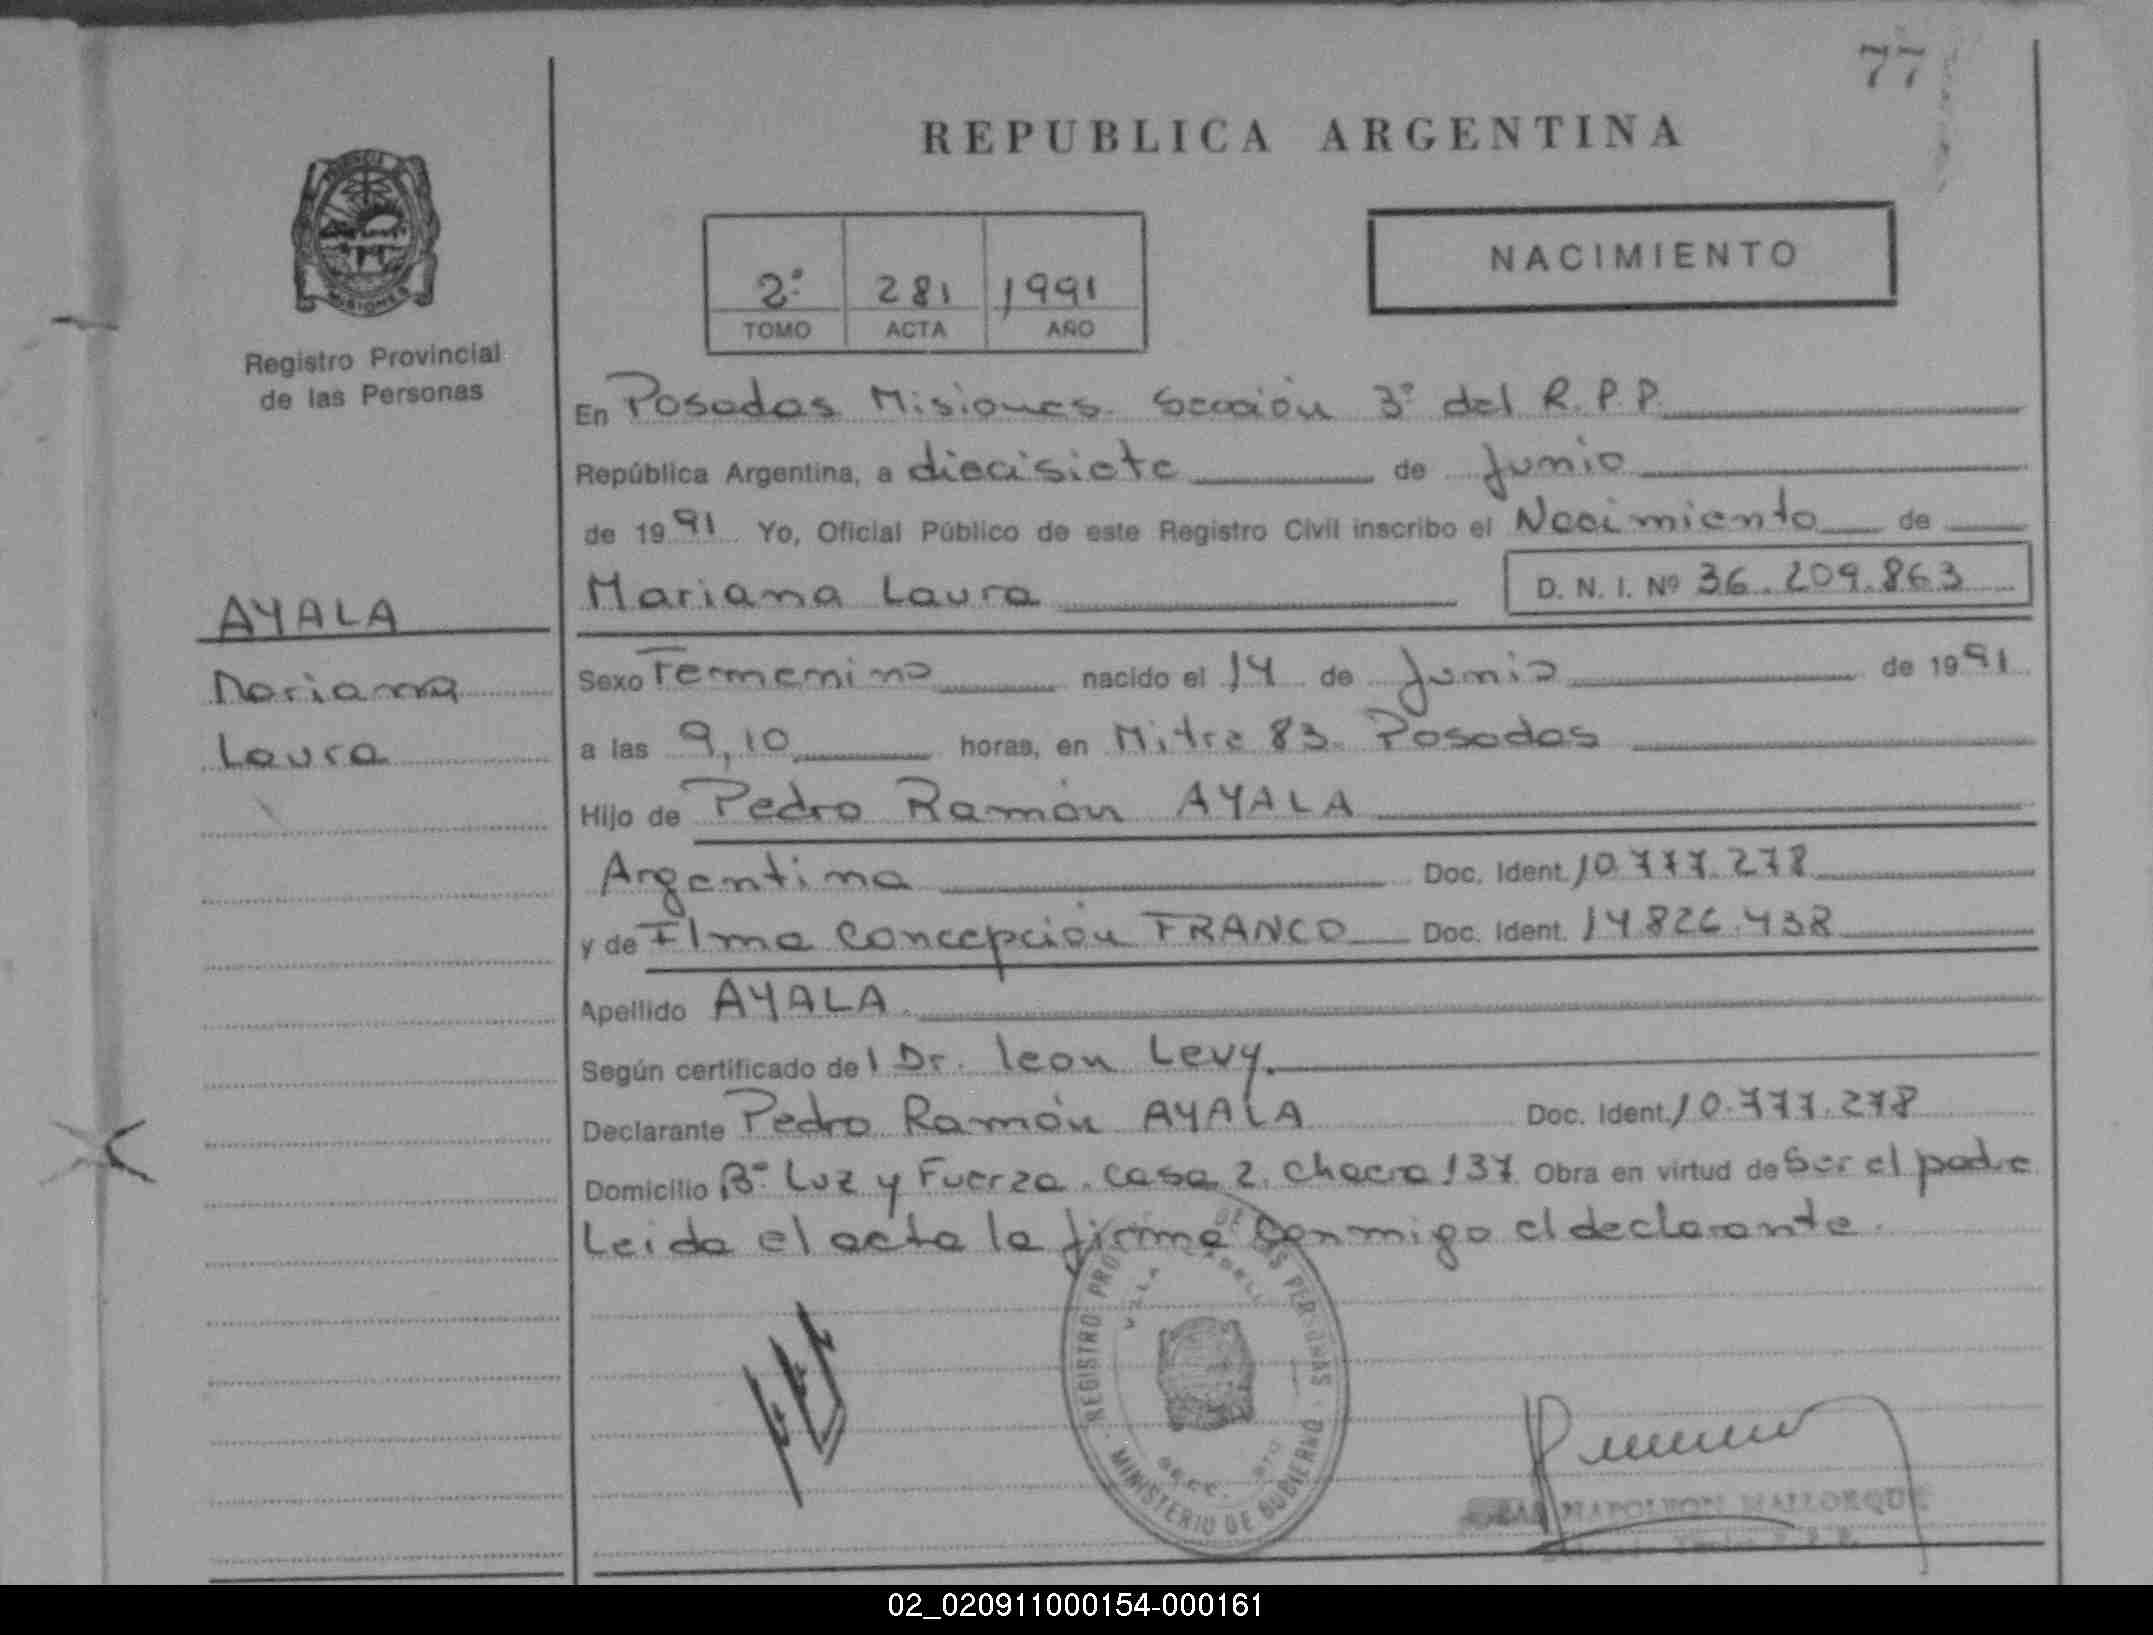 77
REPUBLICA ARGENTINA
NACIMIENTO
2º 281 1991
TOMO ACTA AÑO
MISIONES
Registro Provincial
de las Personas
En Posadas Misiones. Sección 3º del R.P.P.
República Argentina, a diecisiete de Junio
de 1991 Yo, Oficial Público de este Registro Civil inscribo el Nacimiento de
AYALA
Mariana Laura D. N. I. Nº 36.209.863
Mariana
Sexo Femenino nacido el 14 de Junio de 1991
Laura
a las 9,10 horas, en Mitre 83. Posadas
Hijo de Pedro Ramón AYALA
Argentina Doc. Ident. 10.777.278
y de Ilma Concepción FRANCO Doc. Ident. 14826.438
Apellido AYALA.
Según certificado del Dr. leon Levy.
Declarante Pedro Ramón AYALA Doc. Ident. 10.777.278
Domicilio Bº Luz y Fuerza. casa 2. chacra 137 Obra en virtud de Ser el padre
Leida el acta la firma conmigo el declarante.
REGISTRO PROV DE LAS PERSONAS
VILLA
MINISTERIO DE GOBIERNO
NAPOLEON MALLORQUIN
02_020911000154-000161